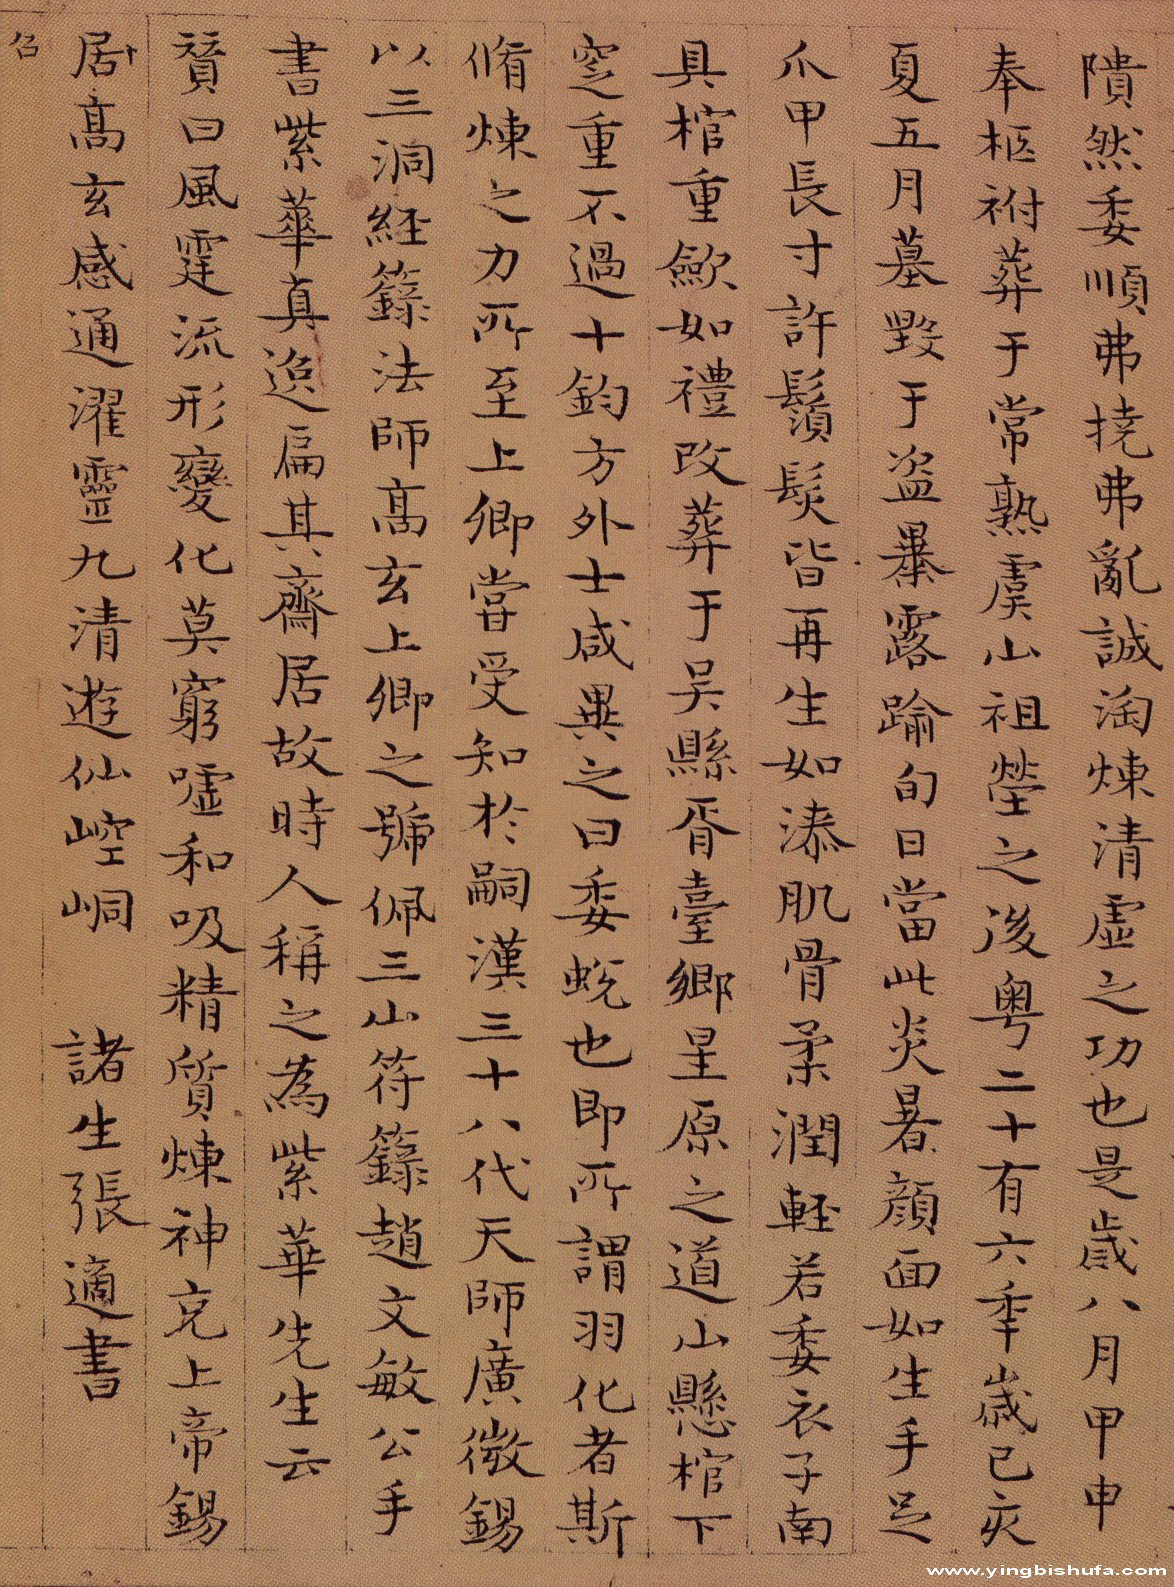 隤然委順弗撓弗亂誠淘煉清虛之功也是歲八月甲申
奉柩祔葬于常熟虞山祖塋之後粵二十有六年歲己亥
夏五月墓毀于盜暴露踰旬日當此炎暑顏面如生手足
爪甲長寸許鬚髮皆再生如漆肌骨柔潤輕若委衣子南
具棺重斂如禮改葬于吳縣胥臺鄉呈原之道山懸棺下
窆重不過十鈞方外士咸異之曰委蛻也即所謂羽化者斯
脩煉之力所至上卿嘗受知於嗣漢三十八代天師廣微錫
以三洞經籙法師高玄上卿之號佩三山符籙趙文敏公手
書紫華真逸扁其齋居故時人稱之為紫華先生云
贊曰風霆流形變化莫窮噓和吸精質煉神充上帝錫
居高玄感通濯靈九清遊仙崆峒 諸生張適書
www.yingbishufa.com